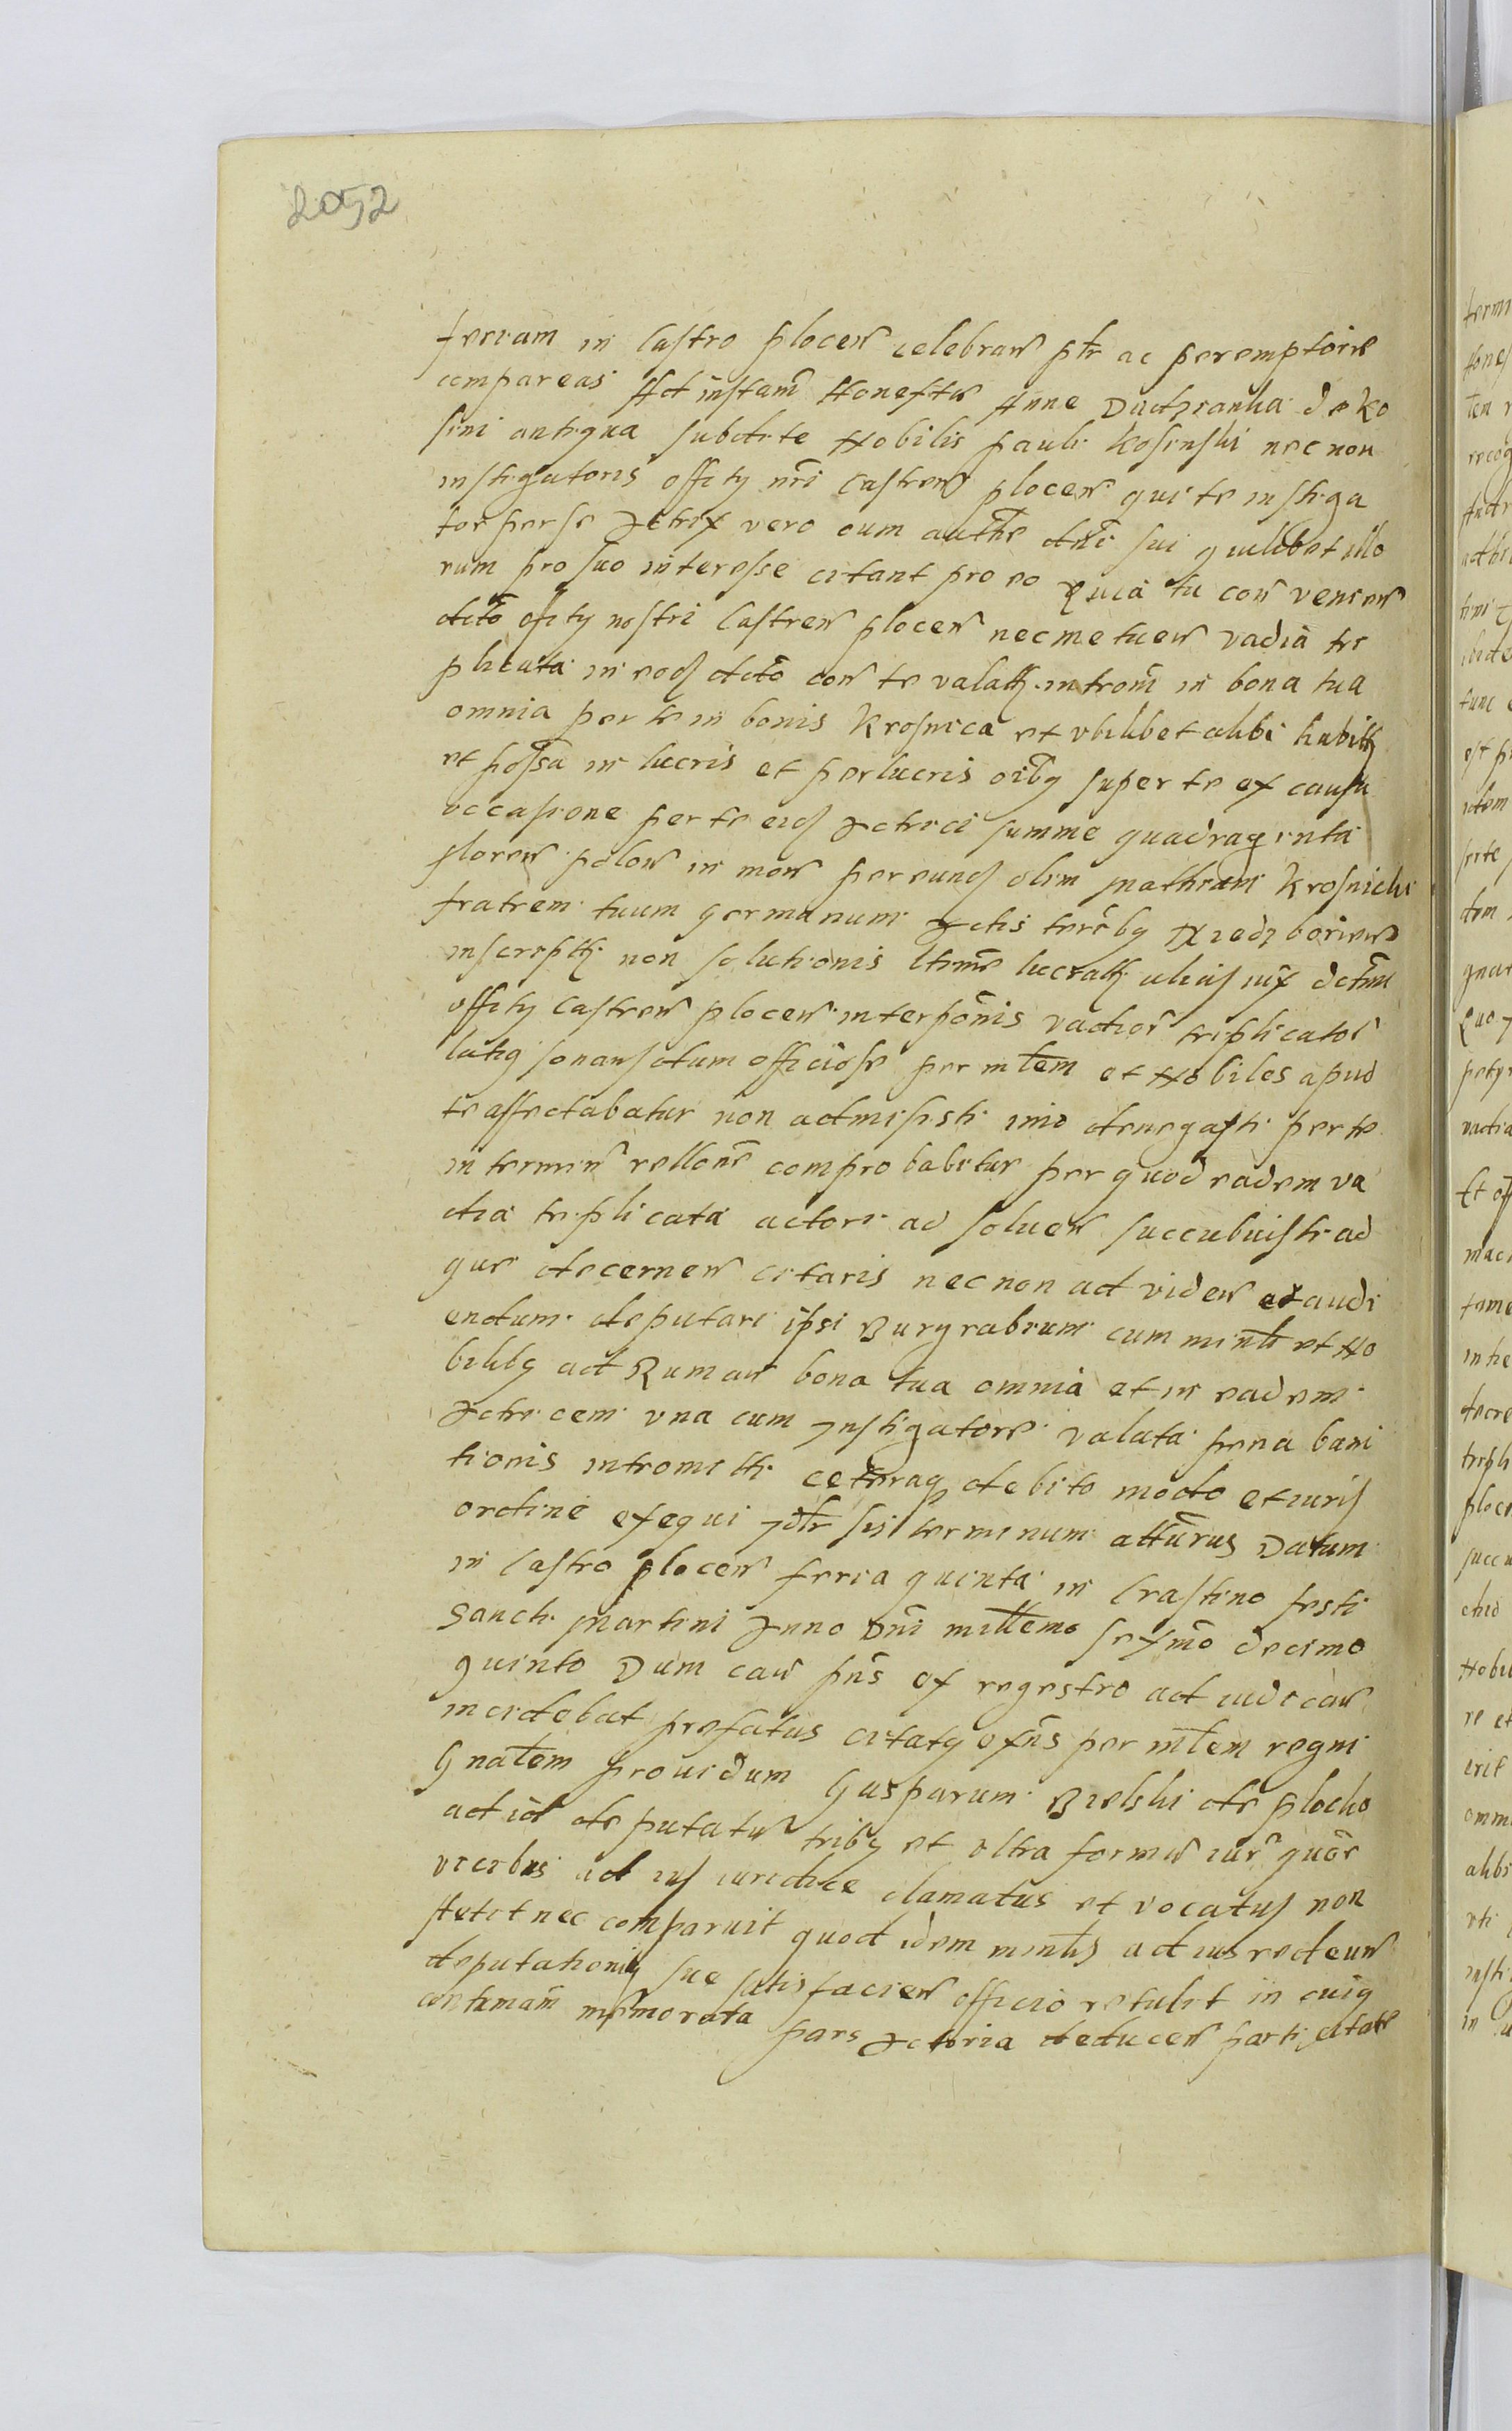 2052
feriam in Castro plocen celebran ptr ac peremptorie
compareas Ad instam Honeste Anne Duczranka de Ko
sini antiqua subdite Nobilis pauli Kosinski nec non
instigatoris officy nri Castren plocen qui te instiga
tor per se Actrix vero cum authe dni sui quilibet illo
rum pro suo interesse citant pro eo Quia tu con venien
dicto officy nostri Castren plocen nec metuen vadia tri
plicata in eod dicto con te valatt introm in bona tua
omnia per te in bonis Krosnica et vbilibet alibi habitt
et possa in lucris et perlucris oibq super te ex causa
occasione per te eid Actrici summe quadraginta
floren polon in mon per eund olim Mathiam Krosnicki
fratrem tuum germanum Actis terrbq Niedzborien
inscriptt non solutionis ltime lucratt aliass iux dctum
officy Castren plocen interponis vadior triplicator
latiq sonan dum officiose per mtem et Nobiles apud
te affectabatur non admisisti imo denegasti per te
in termin rellone comprobabitur per quod eadem va
dia triplicata actori ad soluen succubuisti ad
que decernen citaris nec non ad viden et audi
endum deputari ipsi Burgrabium cum mintli et No
bilibq ad Ruman bona tua omnia et in eadem
Actricem vna cum Instigatore valata pena bani
tionis intromitti ceteraq debito modo et iuris
ordine exequi Idtr sis terminum atturus Datum
in Castro plocen feria quinta in Crastino festi
Sancti Martini Anno Dni millemo sexmo decimo
quinto Dum cau pns ex regestro ad iudican
incidebat prefatus citatq exns per mtem regni
Gnalem prouidum Gasparum Bielski de plocko
ad id deputatum tribq et vltra forme iur quor
vicibus ad ius iuridice clamatus et vocatus non
stetit nec comparuit quod idem mintlis ad ius redeun
deputationiq sue satisfacien officio retulit in cuiq
contumam memorata pars Actoria deducen parti citate